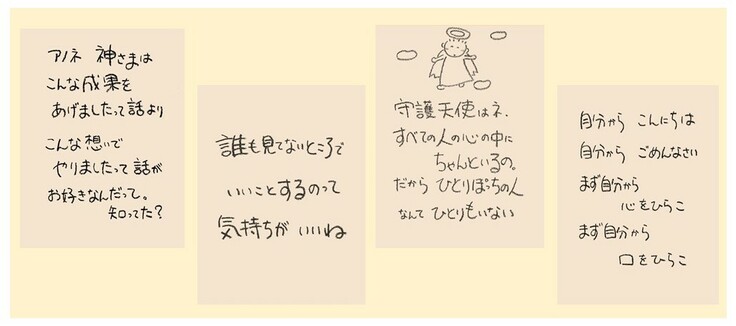 アノネ 神さまは
こんな成果を
あげましたって話より
こんな想いで
やりましたって話が
お好きなんだって。
知ってた？
誰も見てないところで
いいことするのって
気持ちが いいね
守護天使はネ、
すべての人の心の中に
ちゃんといるの。
だから ひとりぼっちの人
なんて ひとりもいない
自分から こんにちは
自分から ごめんなさい
まず自分から
心をひらこ
まず自分から
口をひらこ